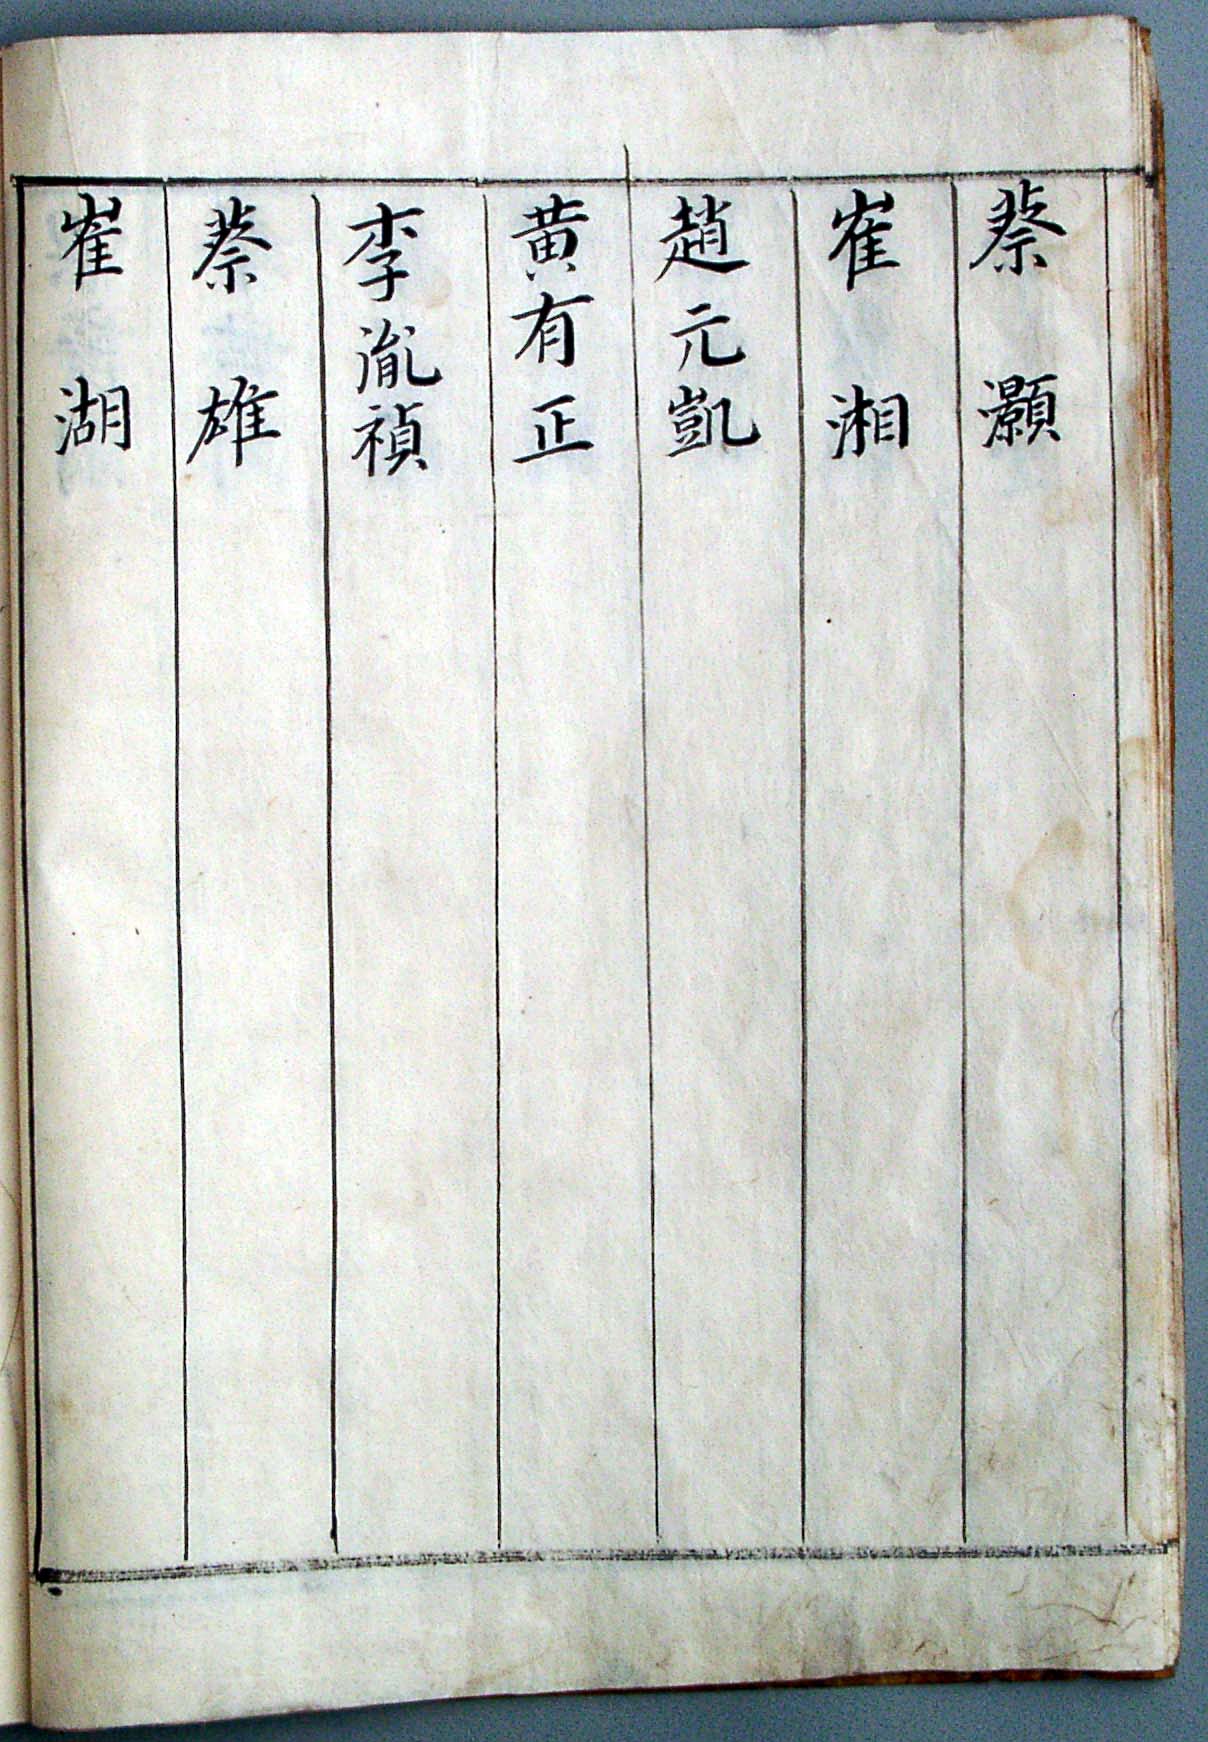 蔡灝
崔湘
趙元凱
黃有正
李胤禎
蔡雄
崔湖